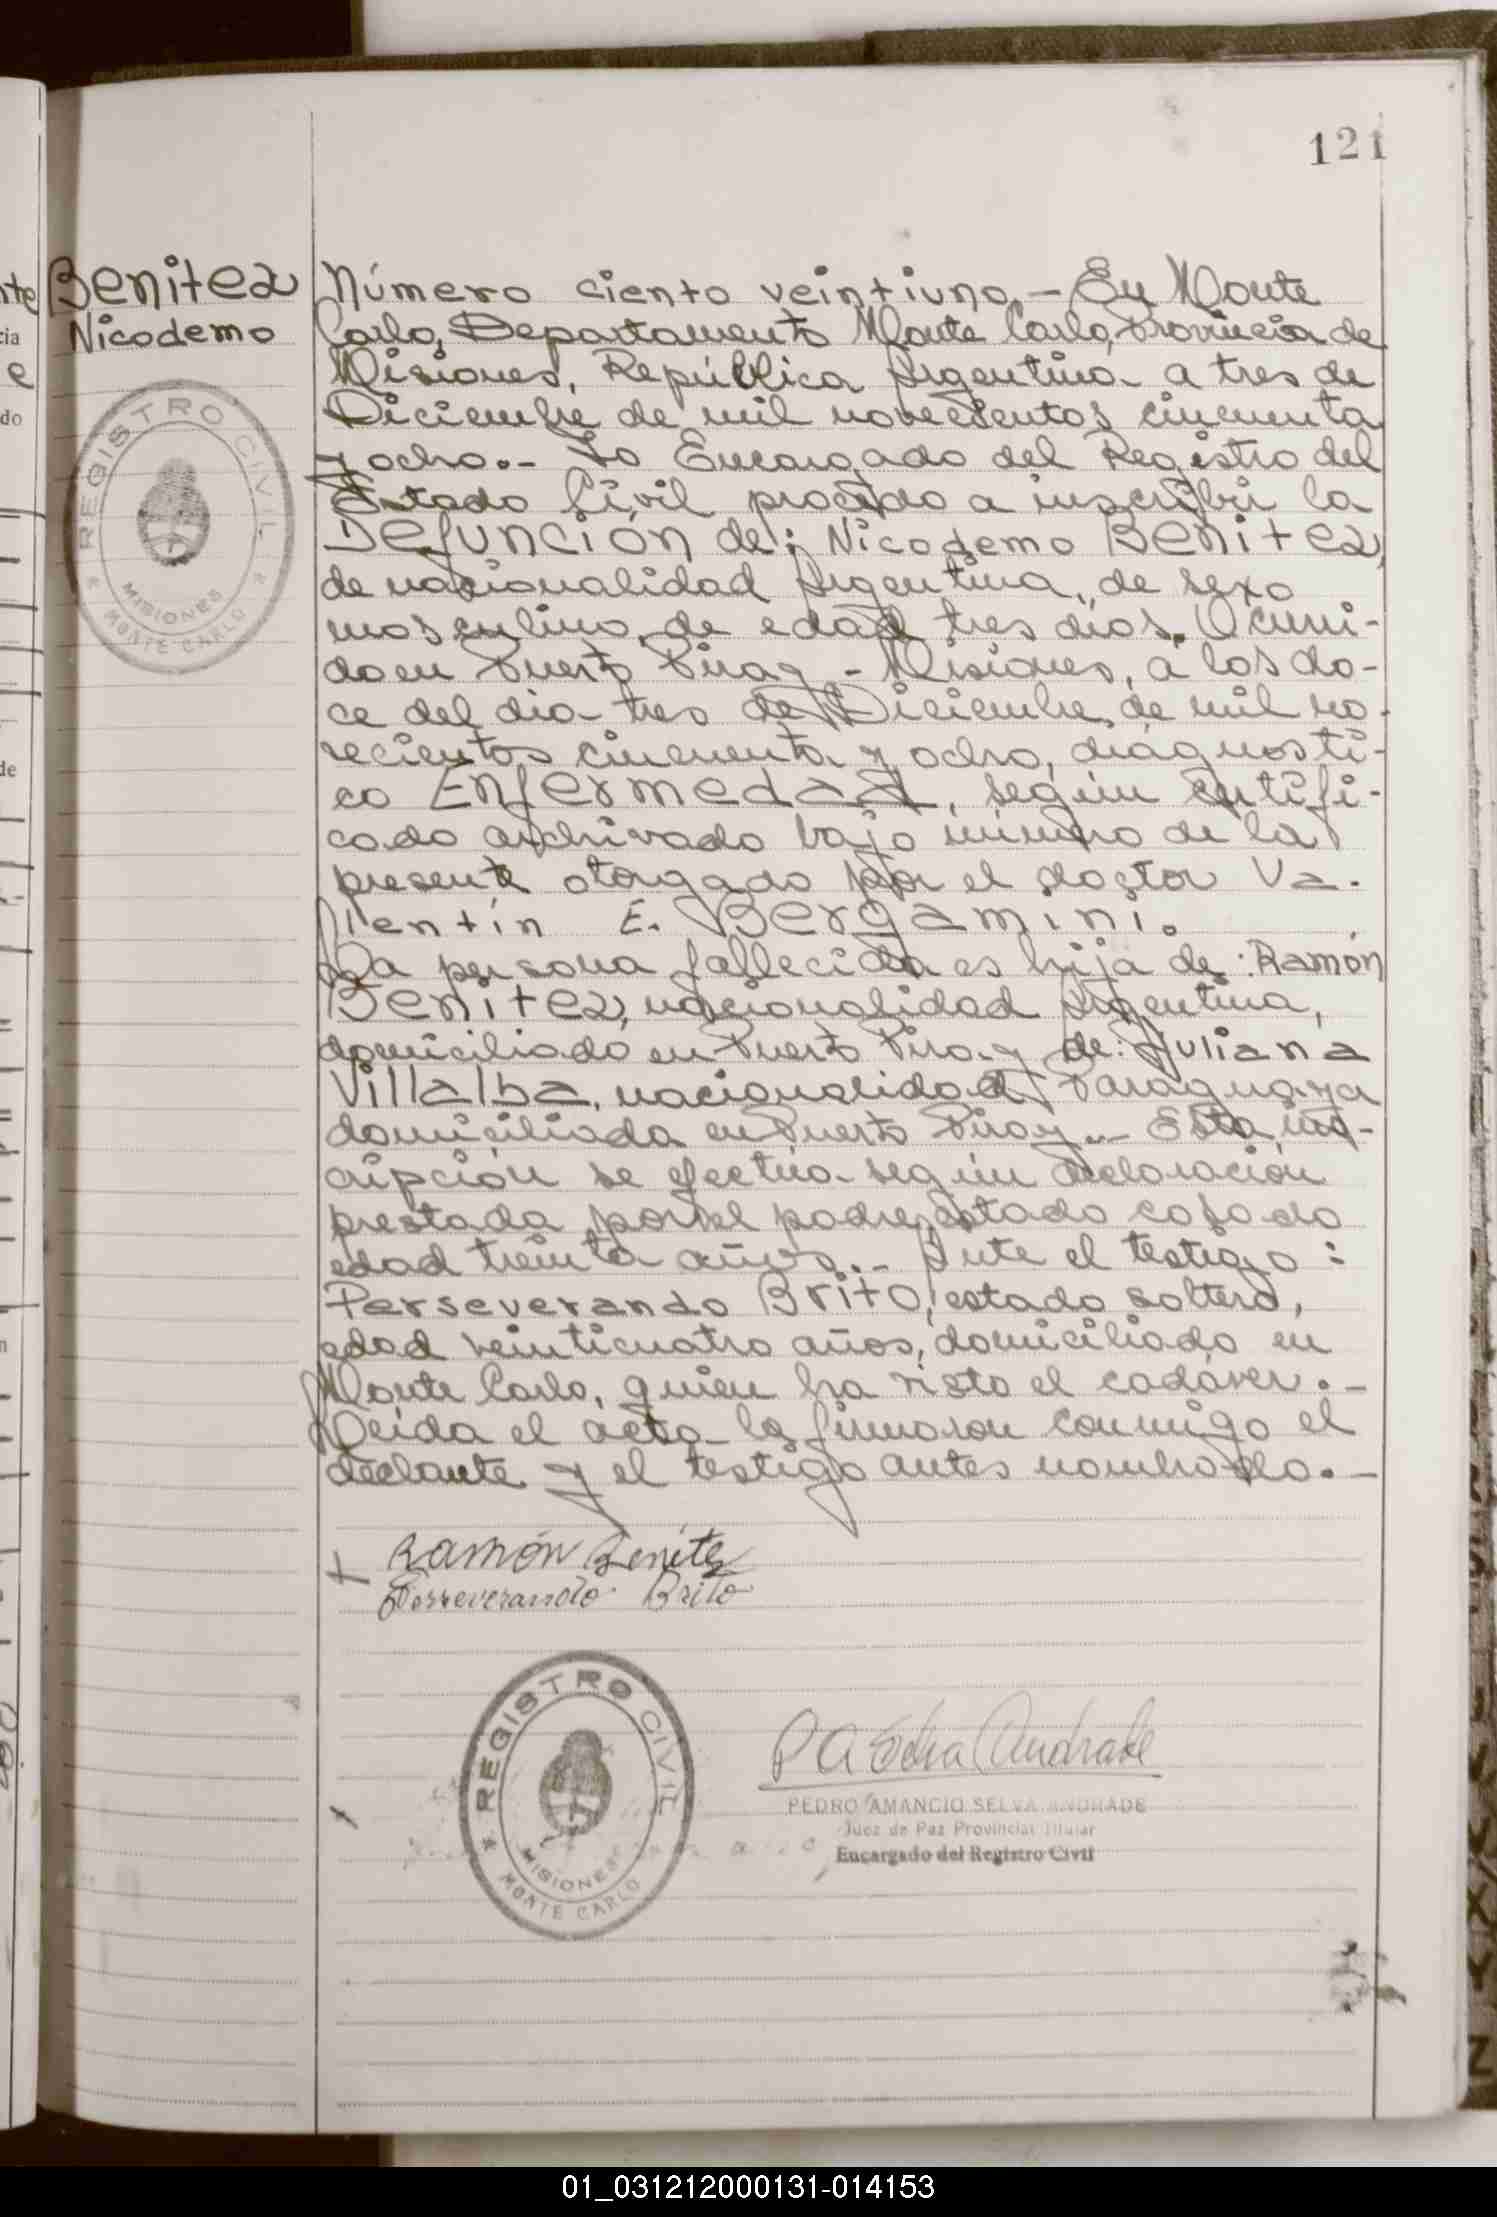 121
Benitez
Nicodemo
REGISTRO CIVIL
MISIONES
MONTE CARLO
Número ciento veintiuno.- En Monte
Carlo, Departamento Monte Carlo, Provincia de
Misiones, República Argentina a tres de
Diciembre de mil novecientos cincuenta
y ocho.- Yo Encargado del Registro del
Estado Civil procedo a inscribir la
Defunción de: Nicodemo Benitez,
de nacionalidad Argentina, de sexo
masculino, de edad tres días. Ocurri-
do en Puerto Piray - Misiones, a los do-
ce del día tres de Diciembre de mil no-
vecientos cincuenta y ocho, diagnósti-
co Enfermedad, según certifi-
cado archivado bajo número de la
presente otorgado por el doctor Va-
lentín E. Bergamini.
La persona fallecida es hija de: Ramón
Benitez, nacionalidad Argentina,
domiciliado en Puerto Piray de: Juliana
Villalba, nacionalidad Paraguaya
domiciliada en Puerto Piray.- Esta ins-
cripción se efectúa según declaración
prestada por el padre, estado casado
edad treinta años.- Ante el testigo:
Perseverando Brito, estado soltero,
edad veinticuatro años, domiciliado en
Monte Carlo, quien ha visto el cadáver.-
Leída el acta la firmaron conmigo el
declante y el testigo antes nombrado.-
Ramón Benítez
Perseverando Brito
REGISTRO CIVIL
MISIONES
MONTE CARLO
P A Selva Andrade
PEDRO AMANCIO SELVA ANDRADE
Juez de Paz Provincial Titular
Encargado del Registro Civil
01_031212000131-014153